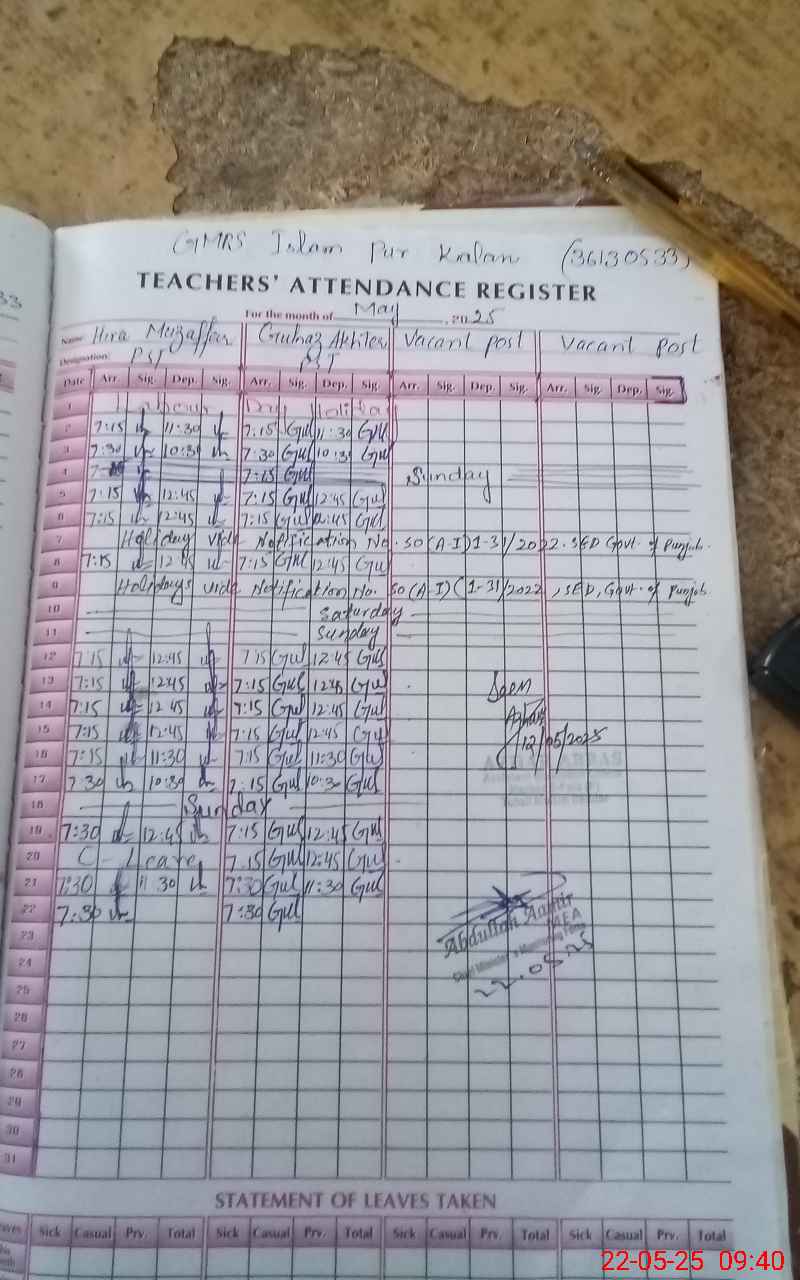 GMRS Islam Pur Kalan (36130533)
TEACHERS' ATTENDANCE REGISTER
For the month of May 2025
Name: Hira Muzaffar Gulnaz Akhter Vacant post Vacant post
Designation: PST PST
Date Arr. Sig. Dep. Sig. Arr. Sig. Dep. Sig. Arr. Sig. Dep. Sig. Arr. Sig. Dep. Sig.
1 Labour Day Holiday
2 7:15 11:30 7:15 Gul 11:30 Gul
3 7:30 10:30 7:30 Gul 10:30 Gul
4 7:15 Gul Sunday
5 7:15 12:45 7:15 Gul 12:45 Gul
6 7:15 12:45 7:15 Gul 12:45 Gul
7 Holiday vide Notification No. SO(A-I)1-31/2022. SED Govt. of Punjab.
8 7:15 12:45 7:15 Gul 12:45 Gul
9 Holidays vide Notification No. SO(A-I)(1-31/2022, SED, Govt. of Punjab
10 Saturday
11 Sunday
12 7:15 12:45 7:15 Gul 12:45 Gul
13 7:15 12:45 7:15 Gul 12:45 Gul
14 7:15 12:45 7:15 Gul 12:45 Gul
15 7:15 12:45 7:15 Gul 12:45 Gul 12/05/2025
16 7:15 11:30 7:15 Gul 11:30 Gul
17 7:30 10:30 7:15 Gul 10:30 Gul
18 Sunday
19 7:30 12:45 7:15 Gul 12:45 Gul
20 C-Leave 7:15 Gul 12:45 Gul
21 7:30 11:30 7:30 Gul 11:30 Gul
22 7:30 7:30 Gul
Abdullah Aamir
MEA
22.05.25
23
24
25
26
27
28
29
30
31
STATEMENT OF LEAVES TAKEN
Sick Casual Prv. Total Sick Casual Prv. Total Sick Casual Prv. Total Sick Casual Prv. Total
22-05-25 09:40